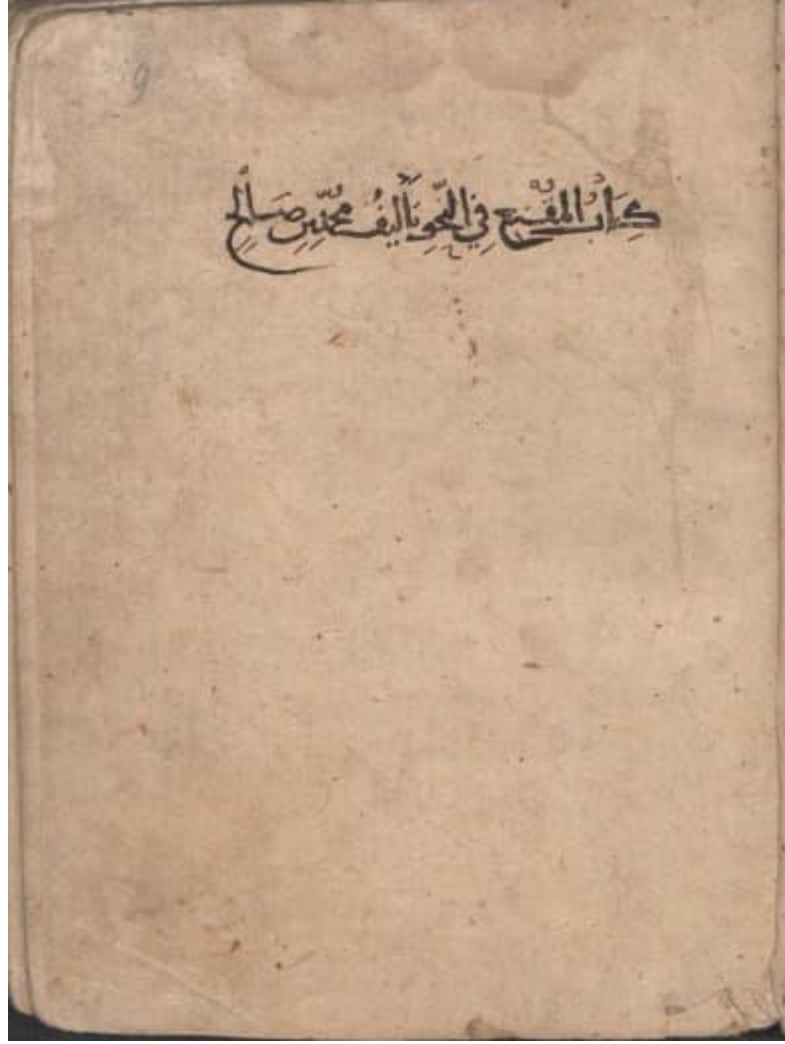 9
كِتَابُ المُقْنِع فِي النَّحْوِ تَأْليفُ مُحمّدِبنِ صَالِحِ